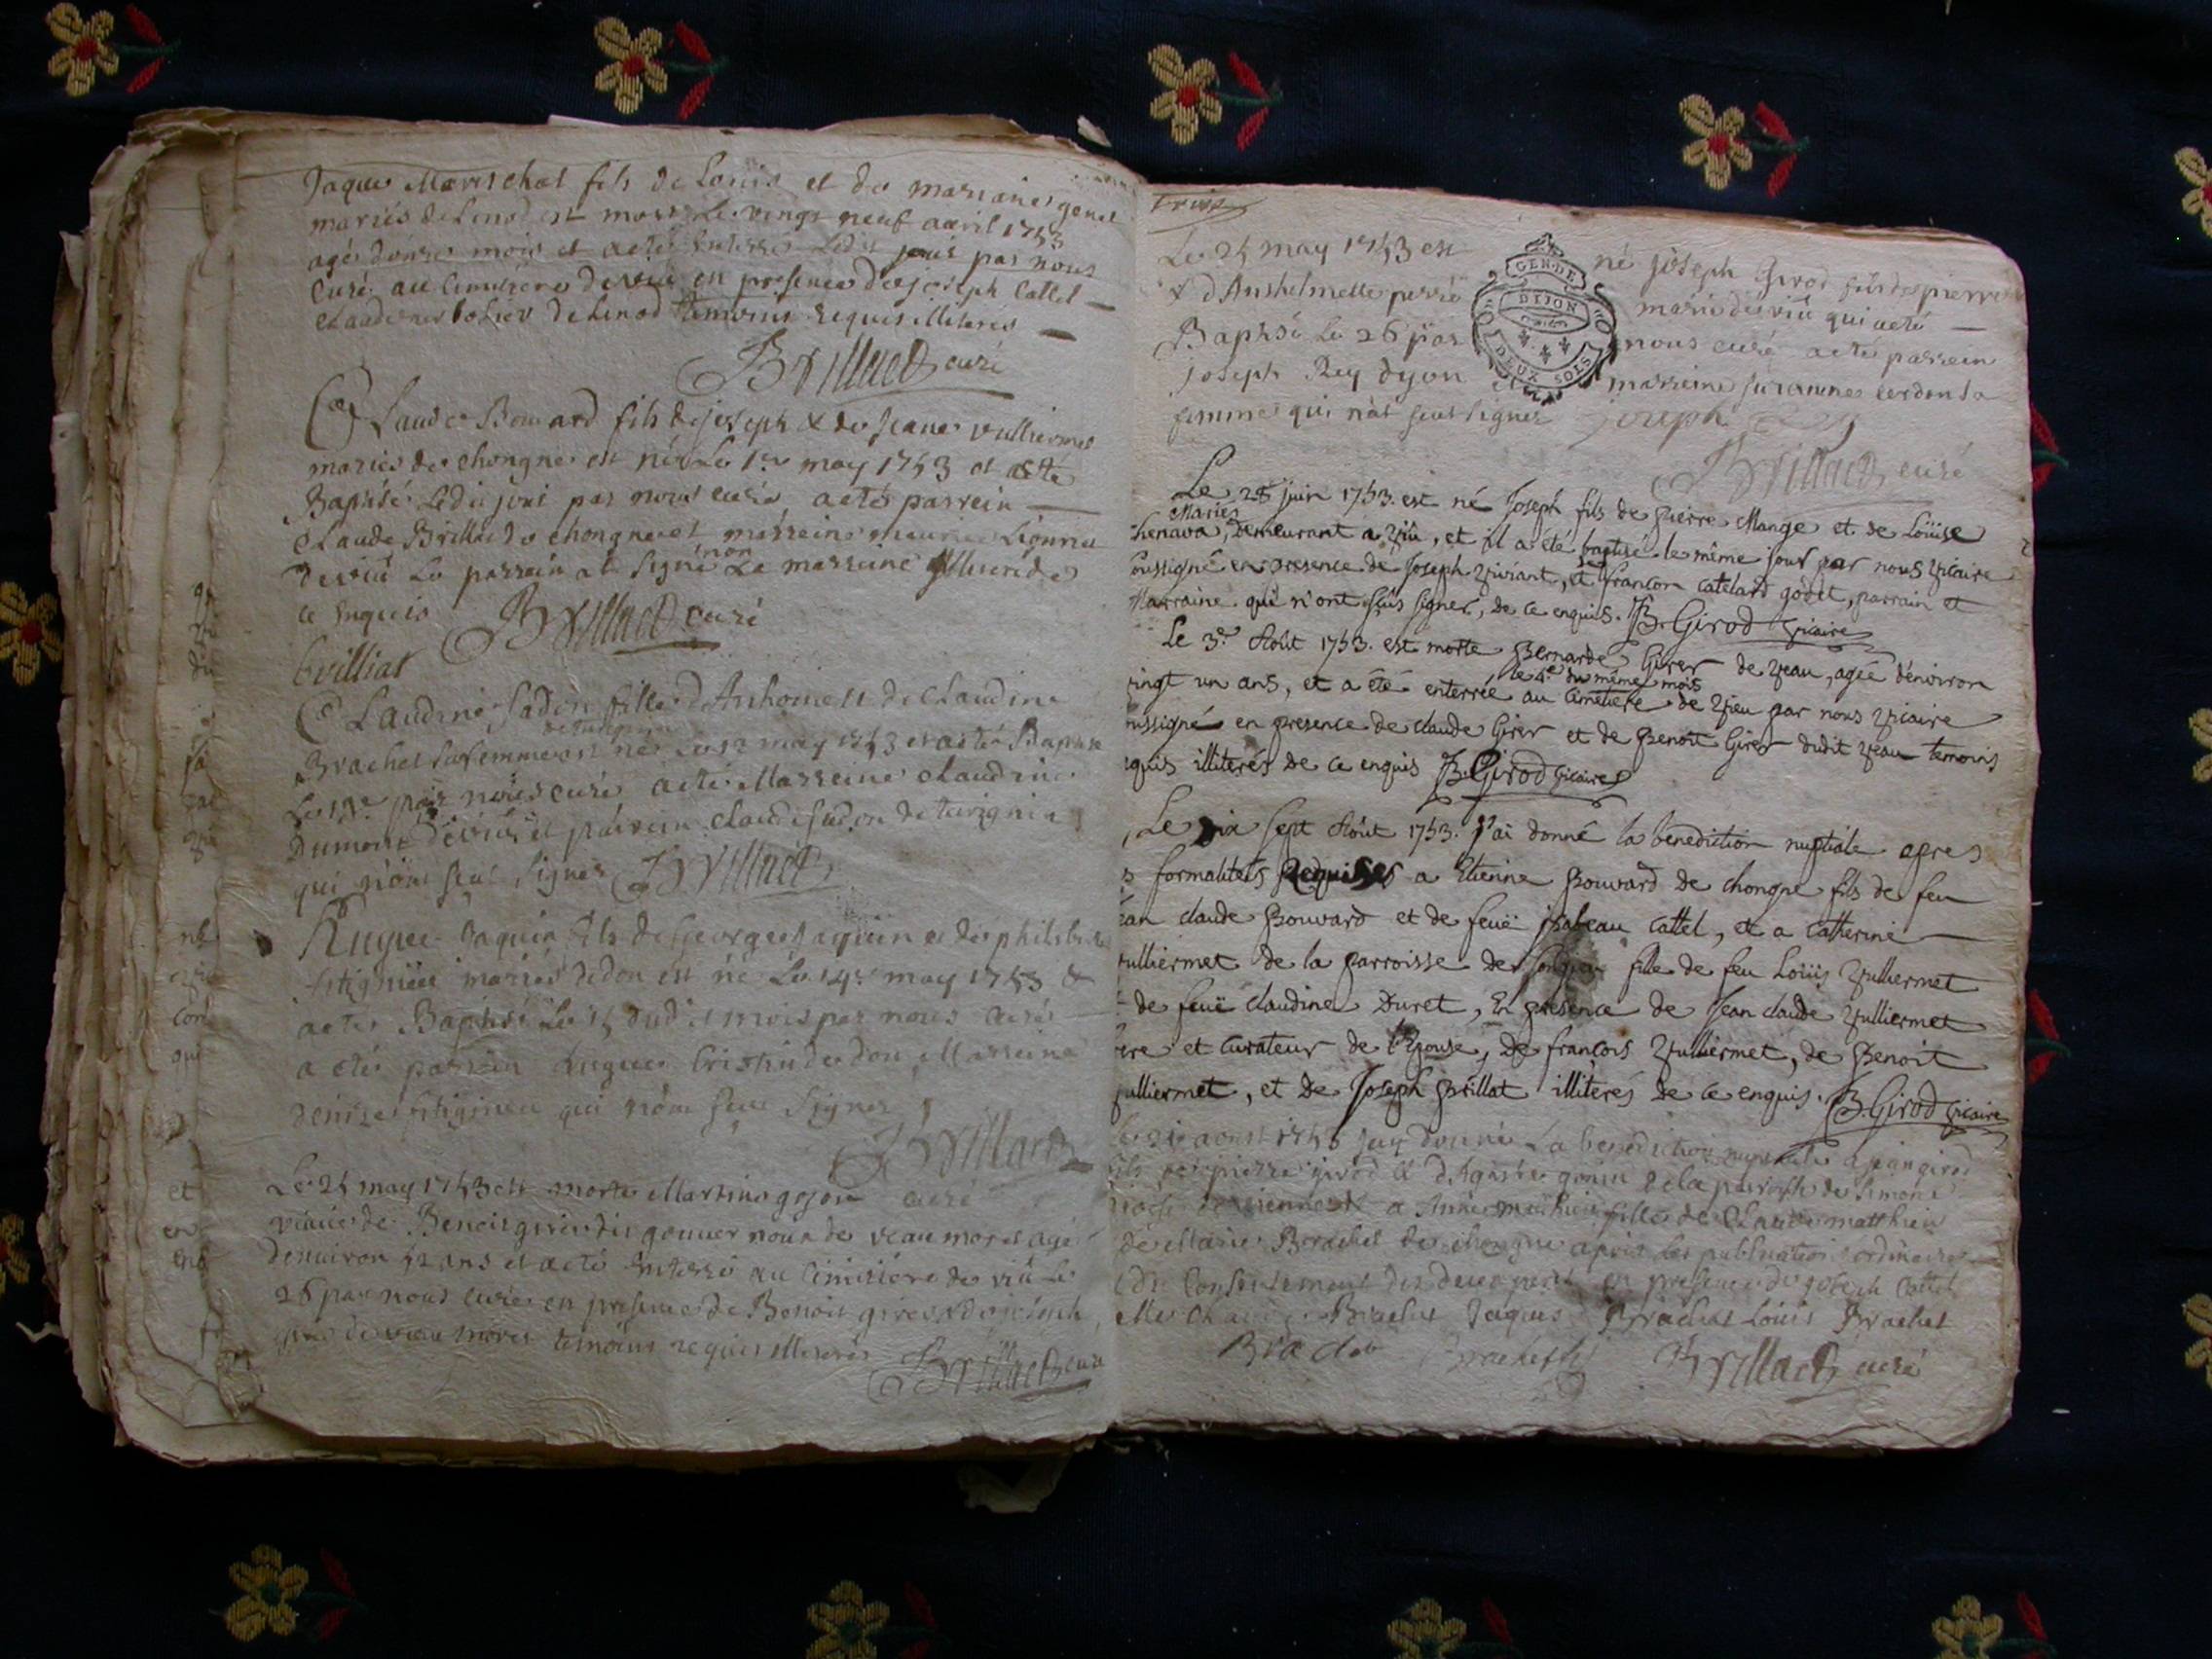 Jaque Mareschal fils de Louis et de mariane genet
mariés de Lenod est mort Le vingt neuf avril 1753
agé donze mois et acté Enterré Ledit jour par nous
Curé au Cimetiere de viû en presence de joseph Cattel
Claude de Lenod temoins requis illiterés
Brillat curé
Claude Bouvard fils de joseph & de jeane vulliermet
mariés de chongne est né Le 1er may 1753 et acté
Baptisé Ledit jour par nous curé acté parrein
Claude Brillat de chongne et marreine
de viû Le parrein a Signé non La marreine Illiterée de
ce Enquis Brillat curé
brilliat
Claudine Sadin fille d'Anthome et de Claudine
de turignin
Brachet sa femme est née Le 12 may 1753 et acté Baptisé
Le 13e par nous curé acté Marreine Claudine
Dumont de viû et parrein Claude Sadin de turignin
qui n'ont seus signer Brillat
Hugue Jaquin fils de George Jaquin et de philiberte
mariés de don est né Le 14e may 1753 &
acté Baptisé Le 15 dudit mois par nous curé
acté parrein Hugue de don Marreine
denise qui n'ont seus Signer
Brillat
curé
Le 25 may 1753 est morte Martine gojon
veuve de Benoit girer dit de veau mort agé
denviron 52 ans et acté Enterré au Cimitiere de viû Le
26 par nous curé en presence de Benoit girer & de joseph
girer de veau temoins requis illiterés
Brillat curé

Le 25 may 1753 est né joseph Girod fils de pierre
& d'Anthelmette mariés de viû qui acté
GEN. DE DIJON DEUX SOLS
Baptisé Le 26 par nous curé acté parrein
joseph Rey dyon et marreine suzanne cerdon sa
femme qui n'at seut signer joseph Rey
Brillat curé
Le 28 juin 1753. est né Joseph fils de Pierre Mange et de Loüise
Mariés
Chenava, Demeurant a viû, et il a été baptisé le même jour par nous vicaire
soussigné en presence de Joseph vivant, et de francon catelard godet, parrain et
Marraine qui n'ont sçus signer, de ce enquis. B. Girod vicaire
Le 3e Août 1753. est morte Bernarde Girer de veau, agée d'environ
le 4e du même mois
vingt un ans, et a été enterrée au cimetiere de vieu par nous vicaire
soussigné en presence de claude Girer et de Benoit Girer dudit veau temoins
requis illiterés de ce enquis B. Girod vicaire
Le dix sept Août 1753. j'ai donné la benediction nuptiale apres
les formalités Requises a Etienne Bouvard de chongne fils de feu
jean claude Bouvard et de feuë isabeau cattel, et a catherine
vulliermet de la parroisse de fille de feu Loüis vulliermet
et de feuë claudine Duret, En presence de Jean claude vulliermet
frere et curateur de l'Epouse, de françois vulliermet, de Benoit
vulliermet, et de Joseph Brillat illiterés de ce enquis. B. Girod vicaire
Le 21 aoust 1753 jay donné La benediction nuptiale a jean girod
fils de pierre girod & d'Agathe gonin de la parroisse de Simone
diocese de vienne & a Anne matthieu fille de Claude matthieu
& de Marie Brachet de chongne aprés Les publications ordinaires
& du Consentement des deux peres en presence de joseph Cattel
Brachet Jaques Brachet Louis Brachet
Brachet Brachet fils Brillat curé